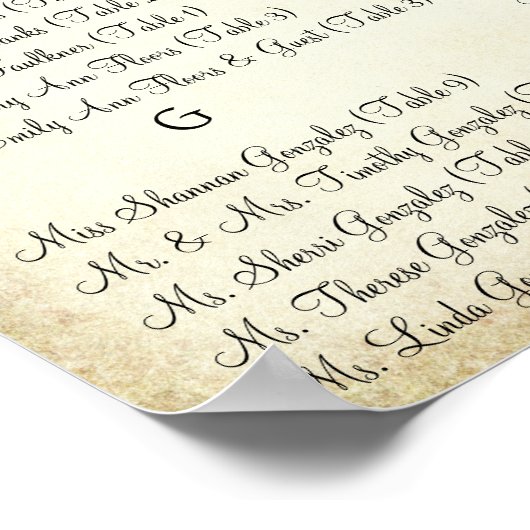 anks (Table
Faulkner (Table 1)
Ann Floors (Table 3)
Emily Ann Floors & Guest (Table 3)
G
Miss Shannan Gonzalez (Table 9)
Mr. & Mrs. Timothy Gonzalez (T
Ms. Sherri Gonzalez (Table
Ms. Therese Gonzalez
Ms. Linda Go